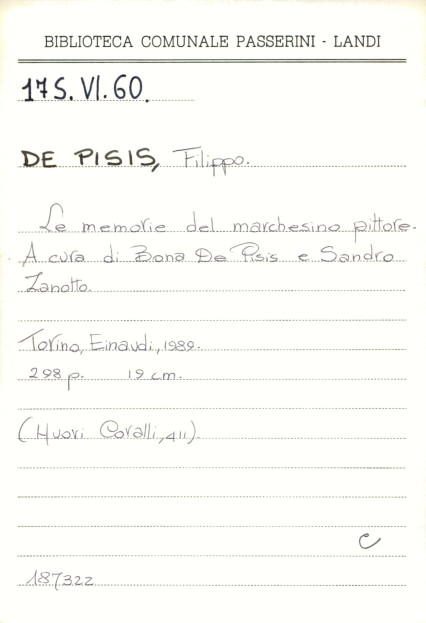 BIBLIOTECA COMUNALE PASSERINI - LANDI
17S.VI.60.
DE PISIS, Filippo.
Le memorie del marchesino pittore.
A cura di Bona De Pisis e Sandro
Zanotto.
Torino, Einaudi, 1989.
298 p. 19 cm.
(Nuovi Coralli, 411).
C
187322